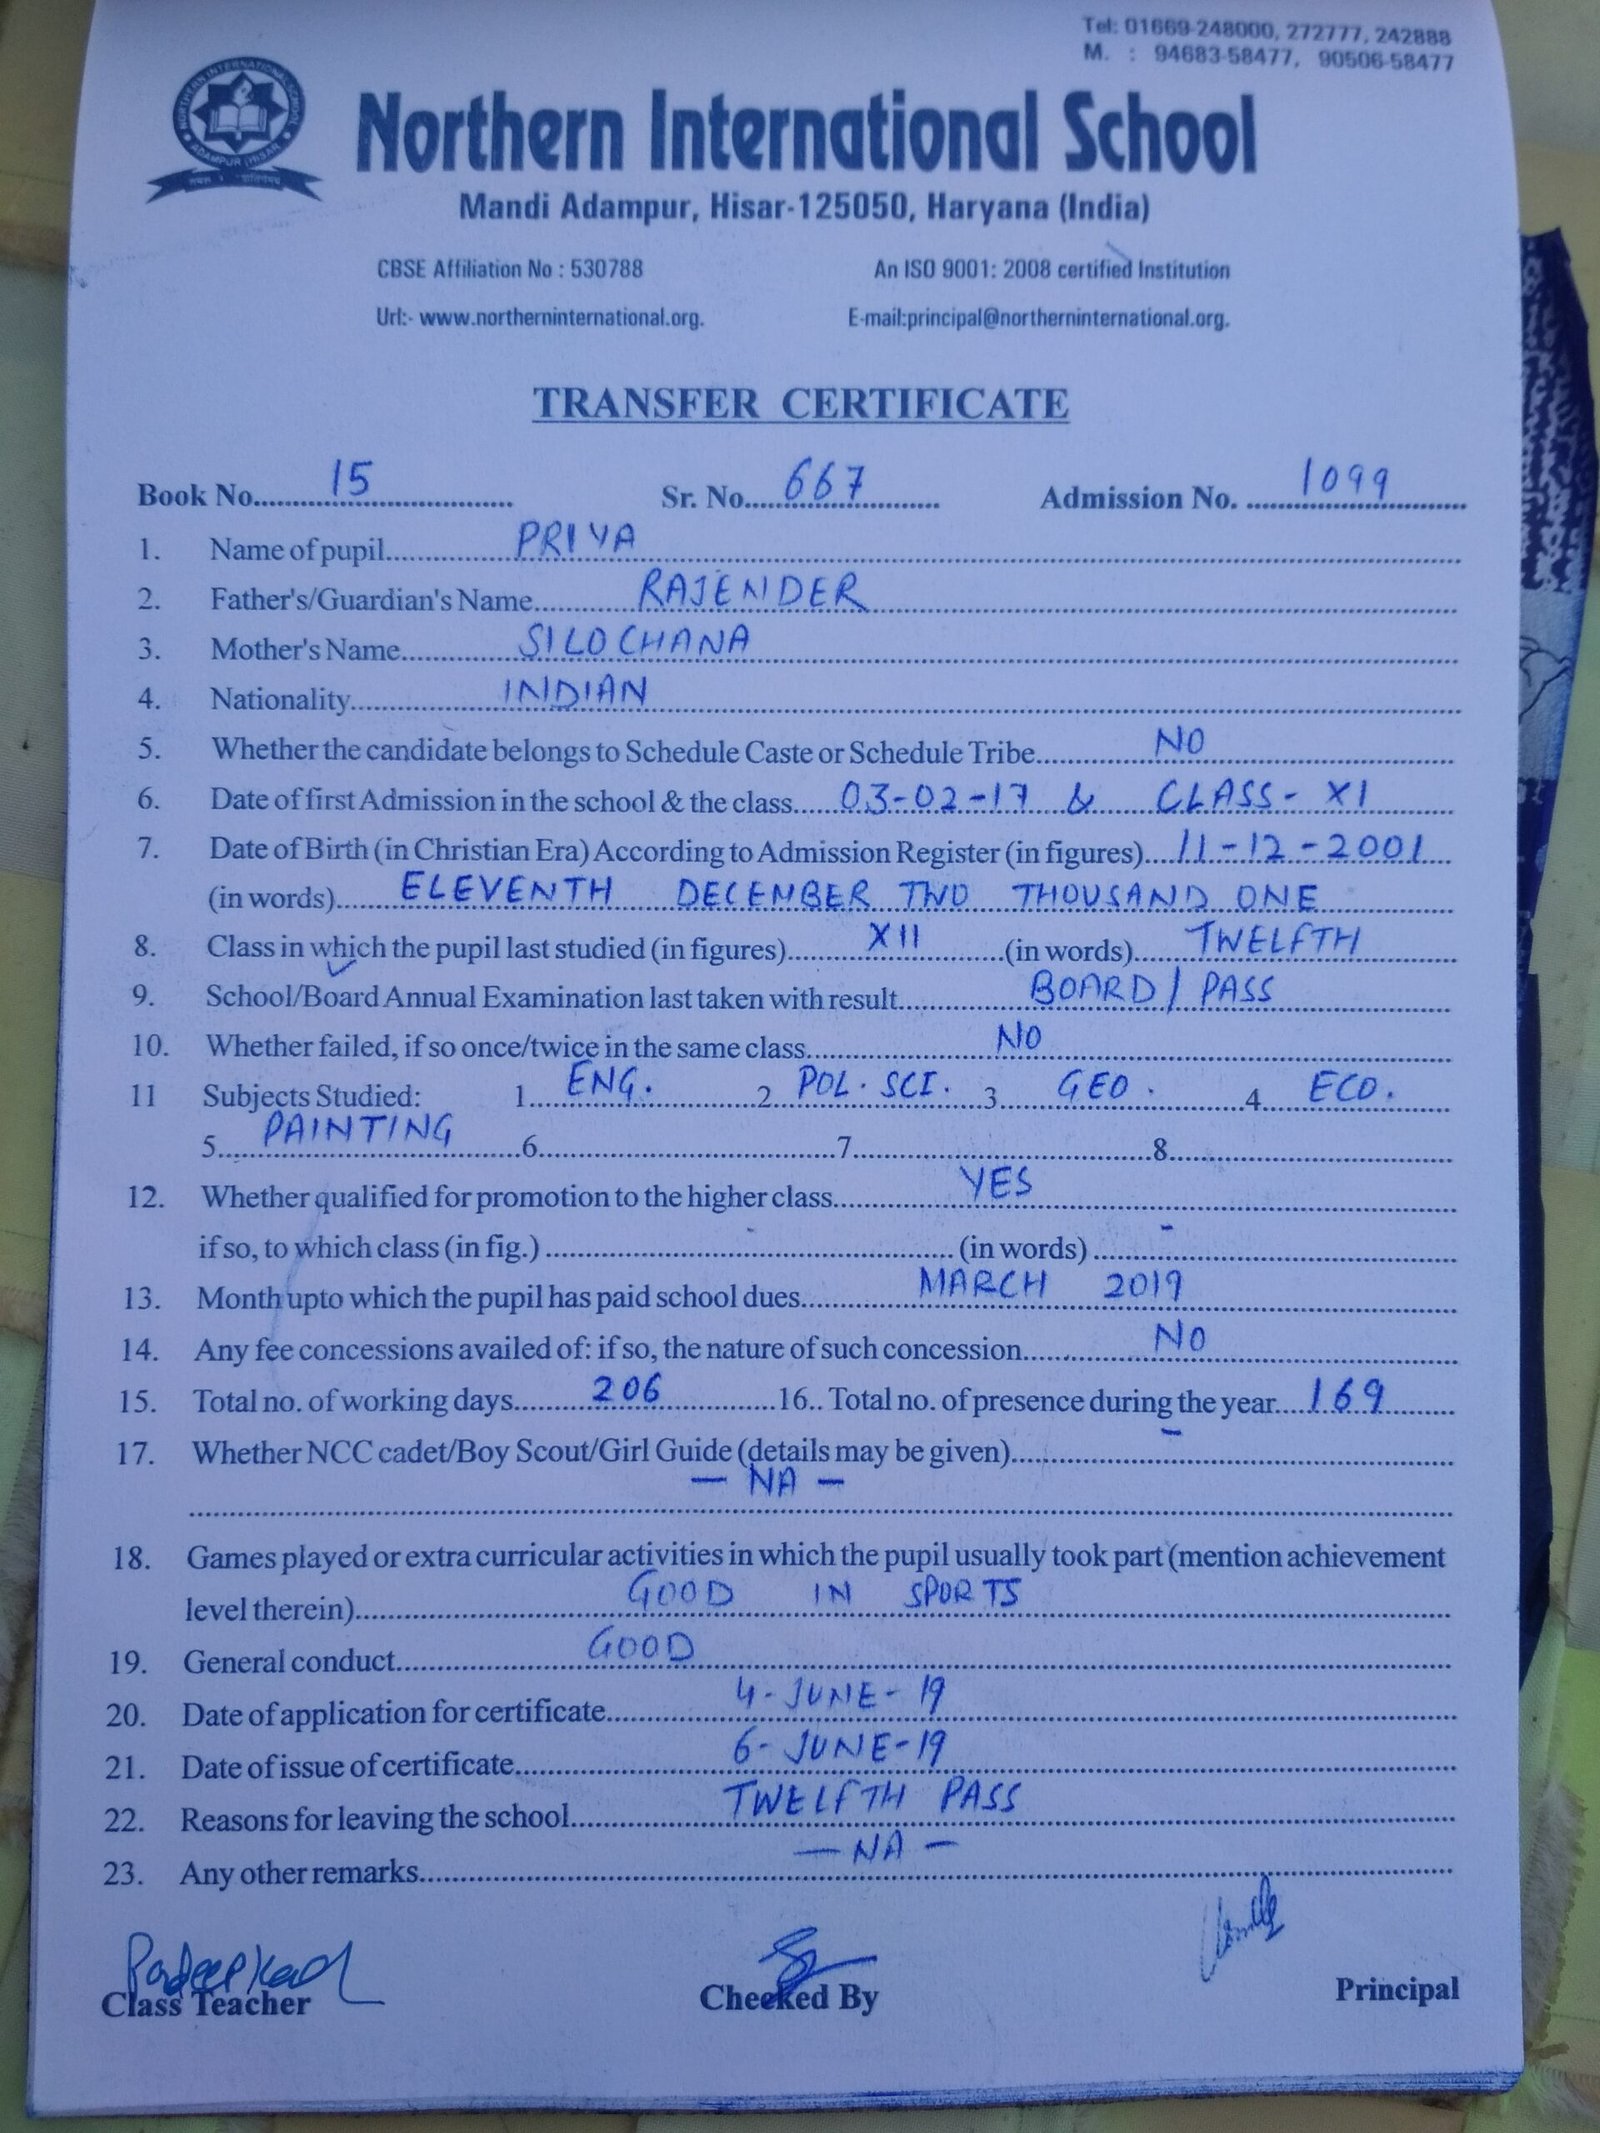 Tel: 01669-248000, 272777, 242888
M. : 94683-58477, 90506-58477
NORTHERN INTERNATIONAL SCHOOL
ADAMPUR (HISAR)
Northern International School
Mandi Adampur, Hisar-125050, Haryana (India)
CBSE Affiliation No : 530788 An ISO 9001: 2008 certified Institution
Url:- www.northerninternational.org. E-mail:principal@northerninternational.org.
TRANSFER CERTIFICATE
Book No. 15 Sr. No. 667 Admission No. 1099
1. Name of pupil PRIYA
2. Father's/Guardian's Name RAJENDER
3. Mother's Name SILOCHANA
4. Nationality INDIAN
5. Whether the candidate belongs to Schedule Caste or Schedule Tribe NO
6. Date of first Admission in the school & the class 03-02-17 & CLASS- XI
7. Date of Birth (in Christian Era) According to Admission Register (in figures) 11-12-2001
(in words) ELEVENTH DECEMBER TWO THOUSAND ONE
8. Class in which the pupil last studied (in figures) XII (in words) TWELFTH
9. School/Board Annual Examination last taken with result BOARD/PASS
10. Whether failed, if so once/twice in the same class NO
11 Subjects Studied: 1 ENG. 2 POL. SCI. 3 GEO. 4 ECO.
5 PAINTING 6 7 8
12. Whether qualified for promotion to the higher class YES
if so, to which class (in fig.) - (in words) -
13. Month upto which the pupil has paid school dues MARCH 2019
14. Any fee concessions availed of: if so, the nature of such concession NO
15. Total no. of working days 206 16.. Total no. of presence during the year 169
17. Whether NCC cadet/Boy Scout/Girl Guide (details may be given) -
- NA -
18. Games played or extra curricular activities in which the pupil usually took part (mention achievement
level therein) GOOD IN SPORTS
19. General conduct GOOD
20. Date of application for certificate 4-JUNE-19
21. Date of issue of certificate 6-JUNE-19
22. Reasons for leaving the school TWELFTH PASS
23. Any other remarks - NA -
Class Teacher Checked By Principal